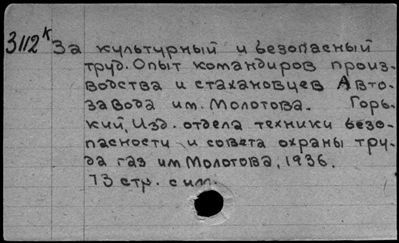 3112к За культурный и безопасный
труд. Опыт командиров произ-
водства и стахановцев Авто-
завода им. Молотова. Горь-
кий, Изд. отдела техники безо-
пасности и совета охраны тру-
да газ им Молотова, 1936.
73 стр. с ил.